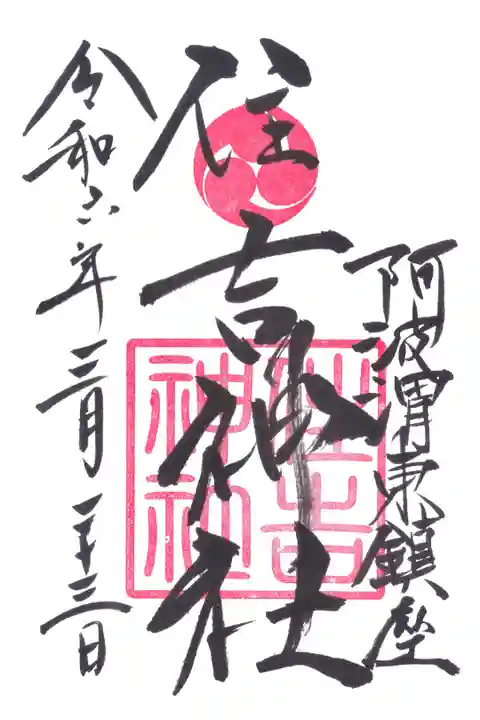 阿波渭東鎮座
住吉神社
住吉
神社
令和六年三月二十三日